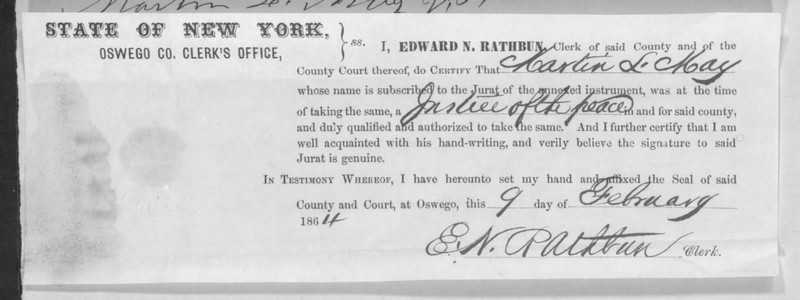 STATE OF NEW YORK,
OSWEGO CO. CLERK'S OFFICE,
ss. I, EDWARD N. RATHBUN, Clerk of said County and of the
County Court thereof, do CERTIFY That Martin L. May
whose name is subscribed to the Jurat of the annexed instrument, was at the time
of taking the same, a Justice of the peace in and for said county,
and duly qualified and authorized to take the same. And I further certify that I am
well acquainted with his hand-writing, and verily believe the signature to said
Jurat is genuine.
IN TESTIMONY WHEREOF, I have hereunto set my hand and affixed the Seal of said
County and Court, at Oswego, this 9 day of February
1864
E. N. Rathbun Clerk.